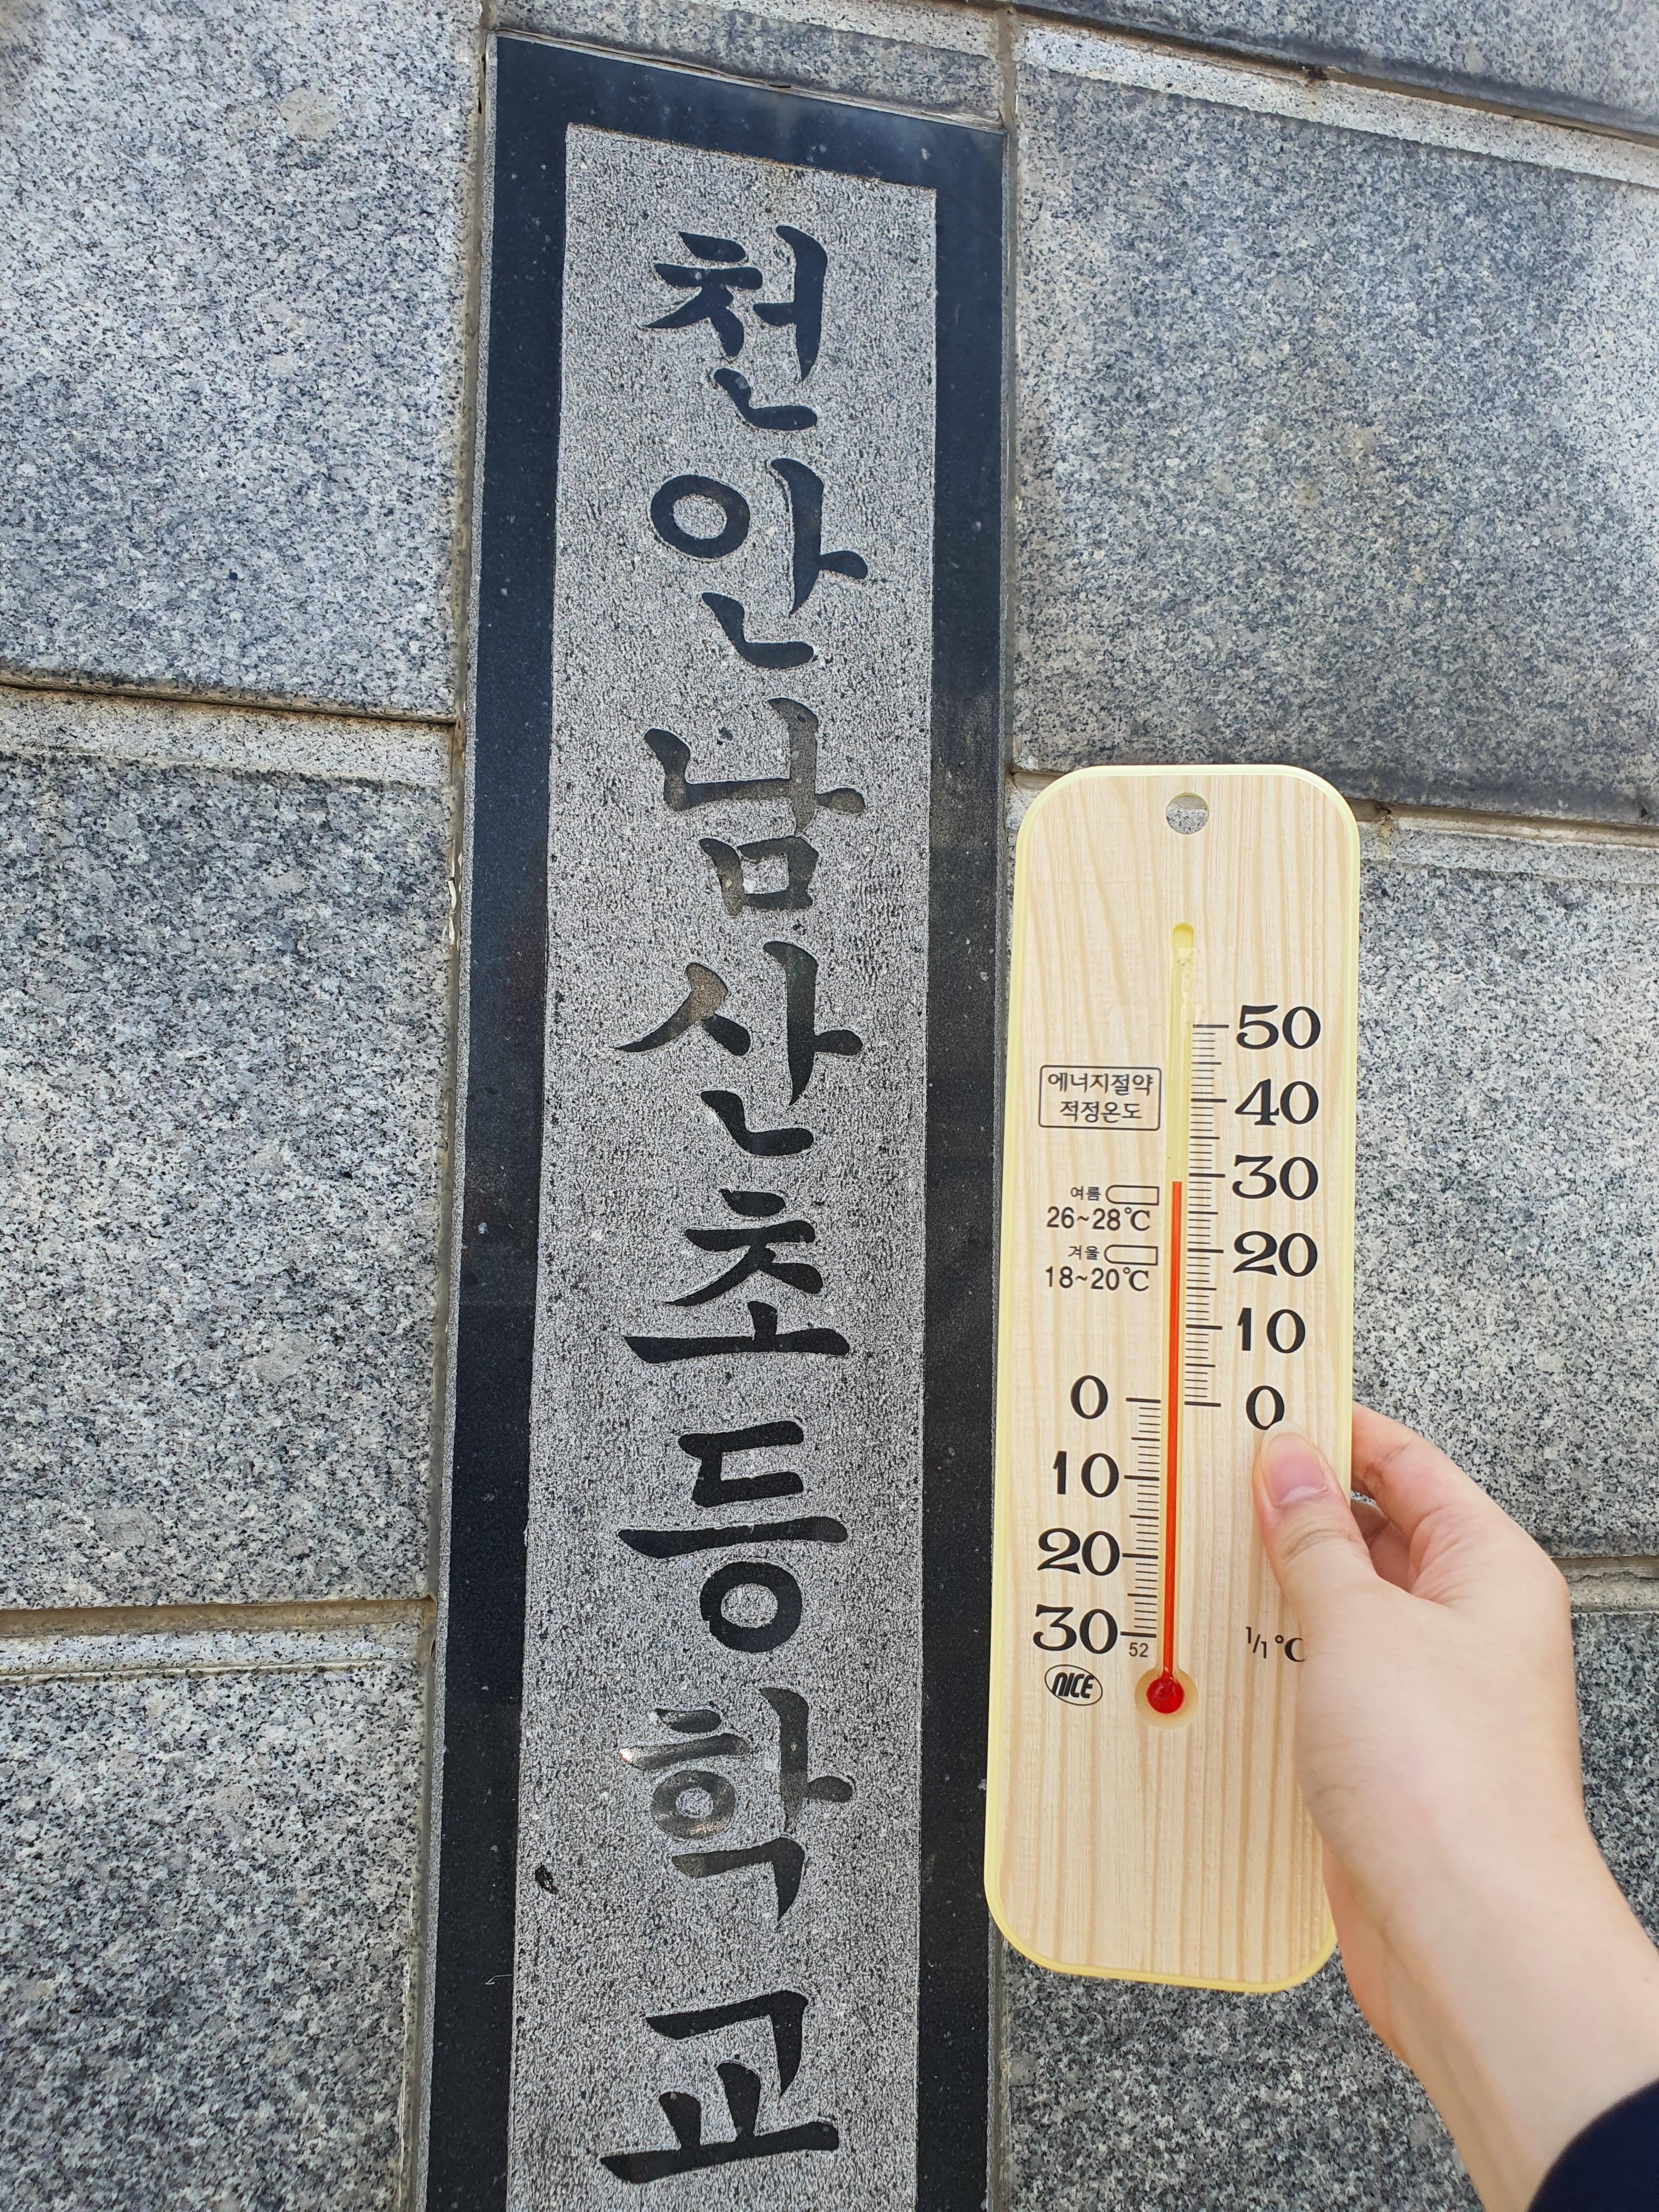 천안남산초등학교
50
에너지절약
적정온도
40
30
여름
26~28℃
20
겨울
18~20℃
10
0
0
10
20
30
52
1/1 °C
NICE